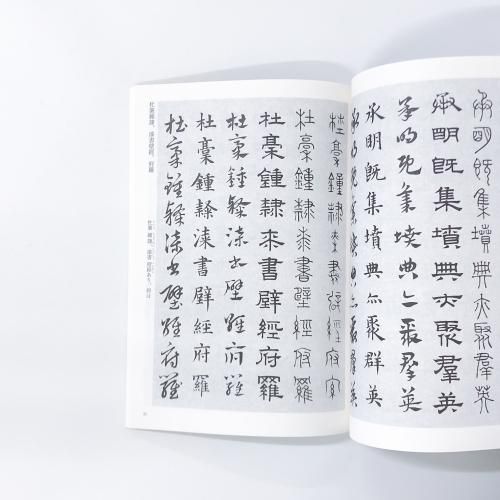 承明既集墳典亦聚群英
承明既集墳典亦聚羣英
承明既集墳典亦聚群英
承明既集墳典亦聚群英
杜稾鍾隸桼書壁經府羅
杜稾鍾隸桼書壁經府羅
杜稾鍾隸桼書壁經府羅
杜稾鍾隸漆書壁經府羅
杜稾鍾隸漆書壁經府羅
杜稾鍾隸漆書壁經府羅
杜稾鍾隸、漆書壁經、府羅